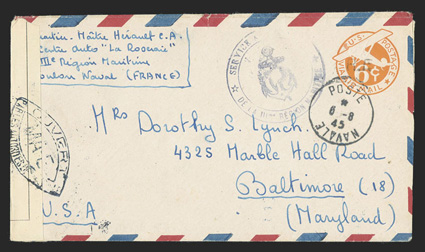 Maître Hérault C.A.
Centre Auto "La Roseraie"
IIIe Région Maritime
Toulon Naval (FRANCE)
SERVICE
U.S. POSTAGE
6¢
AIR MAIL
POSTE
6-8
45
NAVALE
OUVERT
Mrs Dorothy S. Lynch.
4325 Marble Hall Road.
Baltimore (18)
(Maryland)
U.S.A